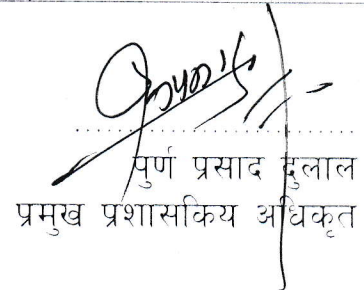 पुर्ण प्रसाद दुलाल
प्रमुख प्रशासकिय अधिकृत